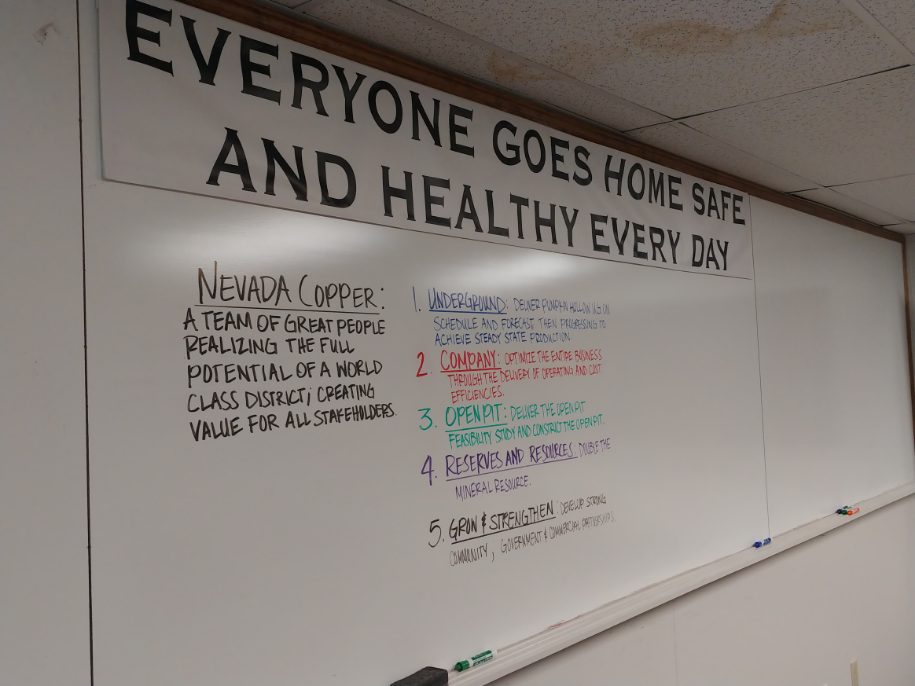 EVERYONE GOES HOME SAFE
AND HEALTHY EVERY DAY
NEVADA COPPER:
A TEAM OF GREAT PEOPLE
REALIZING THE FULL
POTENTIAL OF A WORLD
CLASS DISTRICT; CREATING
VALUE FOR ALL STAKEHOLDERS.
1. UNDERGROUND: DELIVER PUMPKIN HOLLOW UG ON
SCHEDULE AND FORECAST THEN PROGRESSING TO
ACHIEVE STEADY STATE PRODUCTION
2. COMPANY: OPTIMIZE THE ENTIRE BUSINESS
THROUGH THE DELIVERY OF OPERATING AND COST
EFFICIENCIES.
3. OPEN PIT: DELIVER THE OPEN PIT
FEASIBILITY STUDY AND CONSTRUCT THE OPEN PIT.
4. RESERVES AND RESOURCES: DOUBLE THE
MINERAL RESOURCE.
5. GROW & STRENGTHEN: DEVELOP STRONG
COMMUNITY, GOVERNMENT & COMMERCIAL PARTNERSHIPS